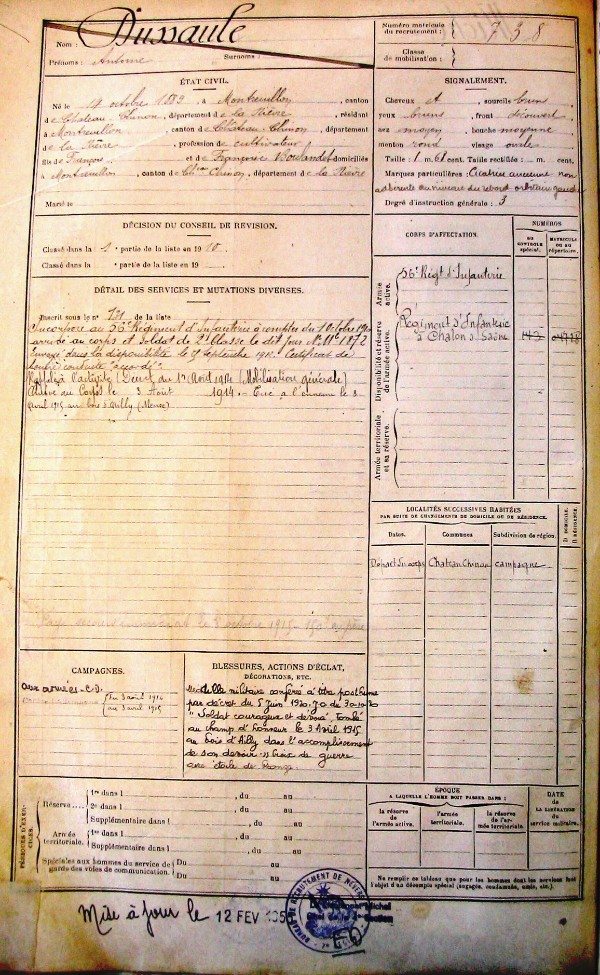 Nom : Dussaule
Prénoms : Antoine Surnoms :
Numéro matricule du recrutement : 738
Classe de mobilisation :
ÉTAT CIVIL.
Né le 14 octobre 1889, à Montreuillon, canton
de Château-Chinon, département de la Nièvre, résidant
à Montreuillon, canton de Château-Chinon, département
de la Nièvre, profession de cultivateur
fils de François et de Françoise domiciliés
à Montreuillon, canton de Chau Chinon, département de la Nièvre
Marié le
SIGNALEMENT.
Cheveux sourcils bruns
yeux bruns, front découvert
nez moyen, bouche moyenne
menton rond visage ovale
Taille : 1 m. 61 cent. Taille rectifiée : m. cent.
Marques particulières : Cicatrice ancienne non
adhérente au niveau du rebord orbitaire gauche
Degré d'instruction générale : 3
DÉCISION DU CONSEIL DE REVISION.
Classé dans la 1e partie de la liste en 1910.
Classé dans la e partie de la liste en 19
CORPS D'AFFECTATION.
NUMÉROS
AU CONTROLE spécial.
MATRICULE OU AU répertoire.
Armée active.
56e Régt d'Infanterie
Disponibilité et réserve de l'armée active.
Régiment d'Infanterie
à Chalon s/ Saône
Armée territoriale et sa réserve.
DÉTAIL DES SERVICES ET MUTATIONS DIVERSES.
Inscrit sous le n° de la liste
Incorporé au 56e Régiment d'Infanterie à compter du 1 Octobre 1910
arrivé au corps et soldat de 2e classe le dit jour
Envoyé dans la disponibilité le septembre 1912. Certificat de
bonne conduite "accordé"
Rappelé à l'activité (Décret du 1er Août 1914) (Mobilisation générale)
Arrivé au Corps le 3 Août 1914. - Tué à l'ennemi le 3
avril 1915 au bois d'Ailly (Meuse)
LOCALITÉS SUCCESSIVES HABITÉES
PAR SUITE DE CHANGEMENTS DE DOMICILE OU DE RÉSIDENCE.
Dates. Communes. Subdivision de région. D. DOMICILE. R. RÉSIDENCE.
Départ du corps Chateau Chinon campagne
CAMPAGNES.
aux armées - C.D.
du 3 août 1914
au 3 avril 1915
BLESSURES, ACTIONS D'ÉCLAT,
DÉCORATIONS, ETC.
Médaille militaire conférée à titre posthume
par décret du 5 Juin 1920. J.O du 30-10-20
"Soldat courageux et dévoué, tombé
au champ d'honneur le 3 Avril 1915
au bois d'Ailly dans l'accomplissement
de son devoir." Croix de guerre
avec étoile de Bronze
PÉRIODES D'EXERCICES.
Réserve 1re dans l , du au
2e dans l , du au
Supplémentaire dans l , du au
Armée territoriale. 1re dans l , du au
Supplémentaire dans l , du au
Spéciales aux hommes du service de garde des voies de communication. Du au
Du au
ÉPOQUE
A LAQUELLE L'HOMME DOIT PASSER DANS :
la réserve de l'armée active.
l'armée territoriale.
la réserve de l'armée territoriale.
DATE
de LA LIBÉRATION du service militaire.
Ne remplir ce tableau que pour les hommes dont les services font
l'objet d'un décompte spécial (engagés, condamnés, omis, etc.).
Mise à jour le 12 FEV 195
BUREAU DE RECRUTEMENT DE NEVERS